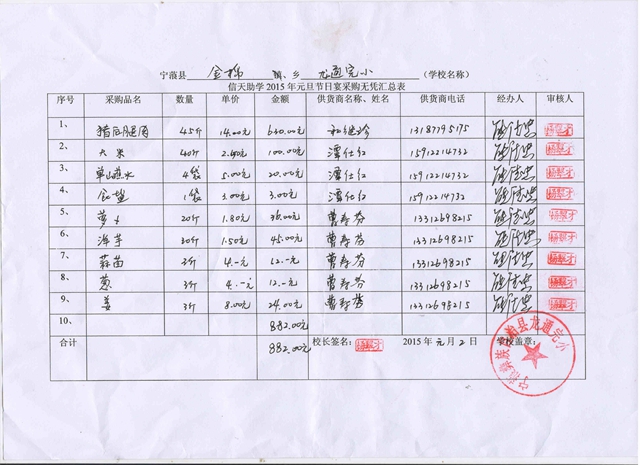 宁蒗县 金棉 镇、乡 龙通完小 (学校名称)
信天助学2015年元旦节日宴采购无凭汇总表
序号 采购品名 数量 单价 金额 供货商名称、姓名 供货商电话 经办人 审核人
1、 猪后腿肉 45斤 14.00元 630.00元 和继珍 13187795175
2、 大米 40斤 2.50元 100.00元 谭仕红 15912214732
3、 单山蘸水 4袋 5.00元 20.00元 谭仕红 15912214732
4、 食盐 1袋 3.00元 3.00元 谭仕红 15912214732
5、 萝卜 20斤 1.80元 36.00元 曹寿芬 13312698215
6、 洋芋 30斤 1.50元 45.00元 曹寿芬 13312698215
7、 蒜苗 3斤 4.-元 12.-元 曹寿芬 13312698215
8、 葱 3斤 4.-元 12.-元 曹寿芬 13312698215
9、 姜 3斤 8.00元 24.00元 曹寿芬 13312698215
10、 882.00元
合计 882.00元 校长签名: 2015年元月2日 学校盖章:
宁蒗彝族自治县龙通完小